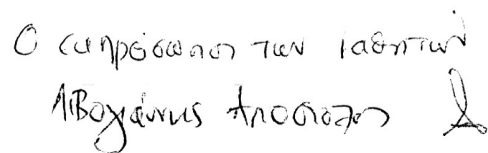 Ο εκπρόσωπος των μαθητών
Λιβογιάννης Απόστολος